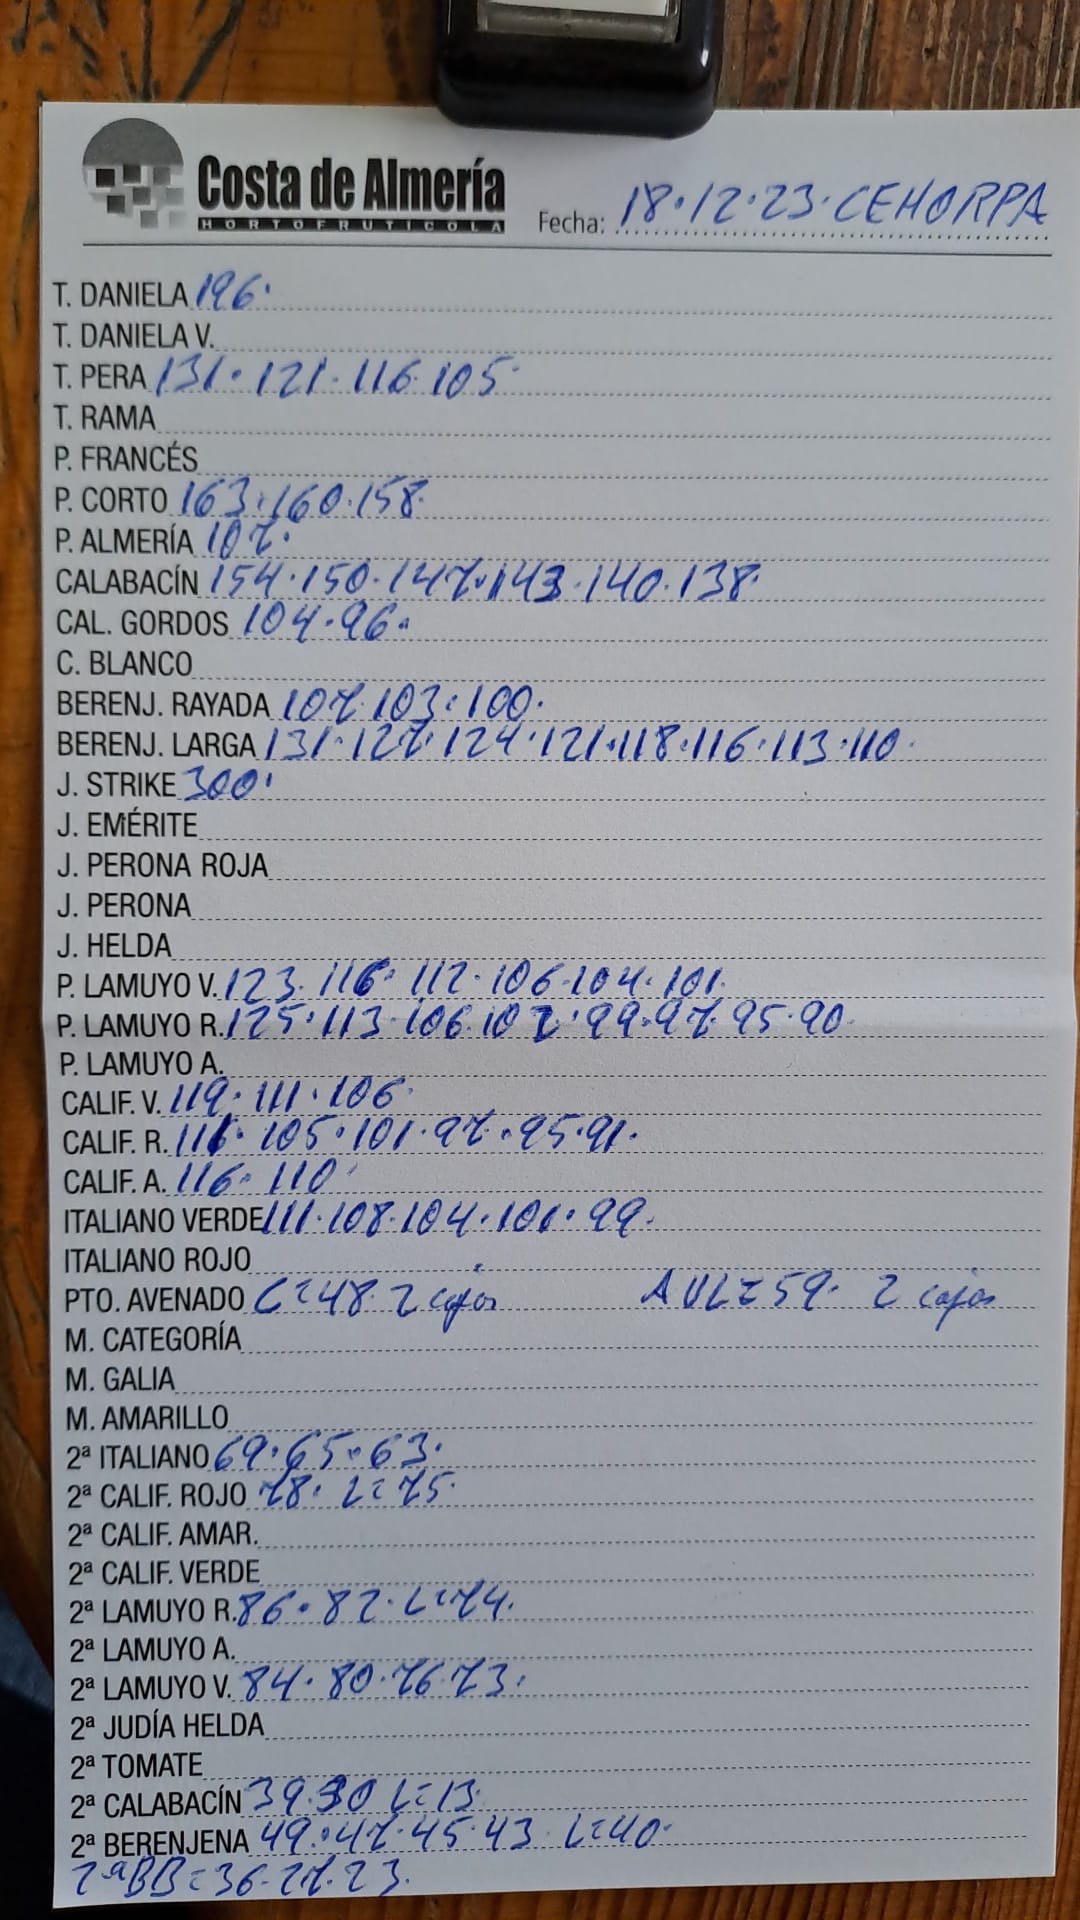 Costa de Almería
HORTOFRUTICOLA
Fecha: 18·12·23·CEHORPA
T. DANIELA 196·
T. DANIELA V.
T. PERA 131·121·116·105·
T. RAMA
P. FRANCÉS
P. CORTO 163·160·158·
P. ALMERÍA 107·
CALABACÍN 154·150·147·143·140·138·
CAL. GORDOS 104·96·
C. BLANCO
BERENJ. RAYADA 107·103·100·
BERENJ. LARGA 131·127·124·121·118·116·113·110·
J. STRIKE 300·
J. EMÉRITE
J. PERONA ROJA
J. PERONA
J. HELDA
P. LAMUYO V. 123·116·112·106·104·101·
P. LAMUYO R. 125·113·106·102·99·97·95·90·
P. LAMUYO A.
CALIF. V. 119·111·106·
CALIF. R. 111·105·101·97·95·91·
CALIF. A. 116·110·
ITALIANO VERDE 111·108·104·101·99·
ITALIANO ROJO
PTO. AVENADO C=48·2 cajas AVL=59· 2 cajas
M. CATEGORÍA
M. GALIA
M. AMARILLO
2ª ITALIANO 69·65·63·
2ª CALIF. ROJO 78· L=75·
2ª CALIF. AMAR.
2ª CALIF. VERDE
2ª LAMUYO R. 86·82·L=74·
2ª LAMUYO A.
2ª LAMUYO V. 84·80·76·73·
2ª JUDÍA HELDA
2ª TOMATE
2ª CALABACÍN 39·30 L=13·
2ª BERENJENA 49·47·45·43· L=40·
2ªBB=36·27·23·